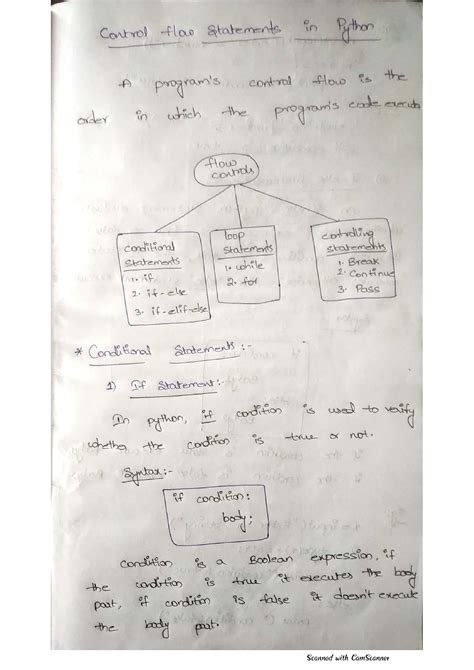 Control flow Statements in Python
A program's control flow is the
order in which the program's code executes
flow
controls
conditional
statements
1. if
2. if-else
3. if-elif-else
loop
statements
1. while
2. for
controlling
statements
1. Break
2. Continue
3. Pass
* Conditional Statements :-
1) If Statement:-
In python, if condition is used to verify
whether the condition is true or not.
Syntax:-
if condition:
body;
condition is a Boolean expression, if
the condition is true it executes the body
part, if condition is false it doesn't execute
the body part.
Scanned with CamScanner